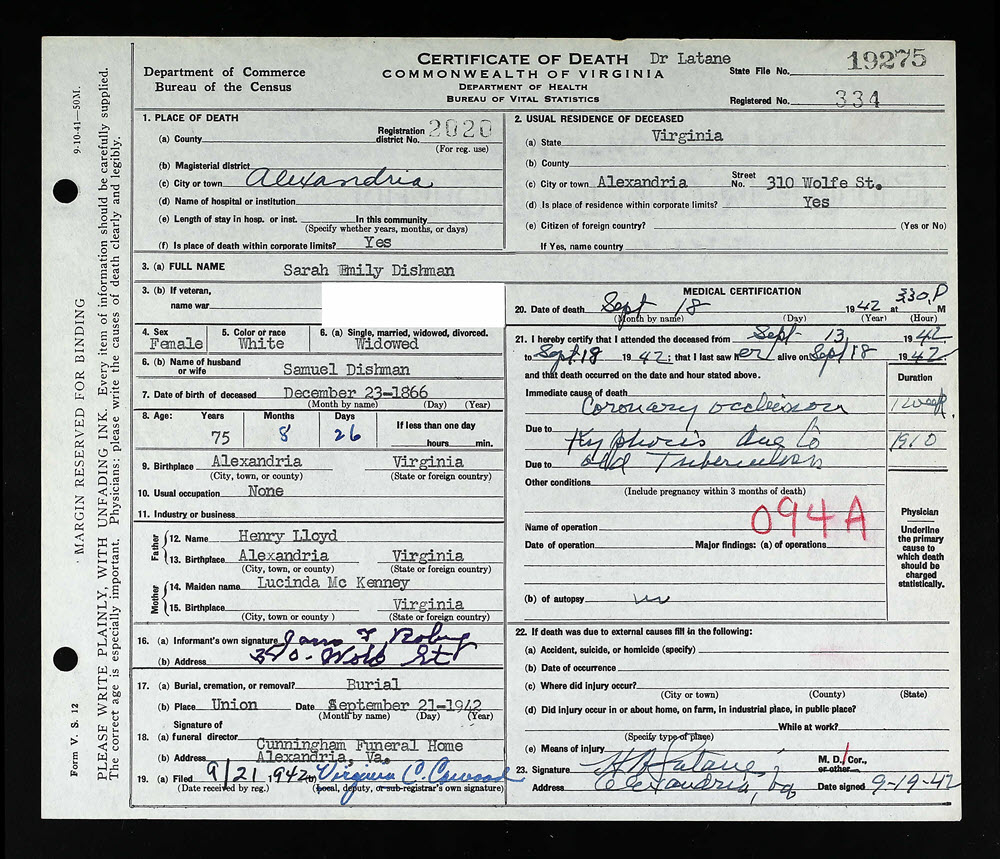 CERTIFICATE OF DEATH Dr Latane
COMMONWEALTH OF VIRGINIA
DEPARTMENT OF HEALTH
BUREAU OF VITAL STATISTICS
Department of Commerce
Bureau of the Census
State File No. 19275
Registered No. 334
1. PLACE OF DEATH
(a) County Registration district No. 2020
(For reg. use)
(b) Magisterial district
(c) City or town Alexandria
(d) Name of hospital or institution
(e) Length of stay in hosp. or inst. In this community
(Specify whether years, months, or days)
(f) Is place of death within corporate limits? Yes
2. USUAL RESIDENCE OF DECEASED
(a) State Virginia
(b) County
(c) City or town Alexandria Street No. 310 Wolfe St.
(d) Is place of residence within corporate limits? Yes
(e) Citizen of foreign country? (Yes or No)
If Yes, name country
3. (a) FULL NAME Sarah Emily Dishman
3. (b) If veteran,
name war
4. Sex 5. Color or race 6. (a) Single, married, widowed, divorced.
Female White Widowed
6. (b) Name of husband
or wife Samuel Dishman
7. Date of birth of deceased December 23-1866
(Month by name) (Day) (Year)
8. Age: Years Months Days If less than one day
75 8 26 hours min.
9. Birthplace Alexandria Virginia
(City, town, or county) (State or foreign country)
10. Usual occupation None
11. Industry or business
Father
12. Name Henry Lloyd
13. Birthplace Alexandria Virginia
(City, town, or county) (State or foreign country)
Mother
14. Maiden name Lucinda Mc Kenney
15. Birthplace Virginia
(City, town, or county ) (State or foreign country)
16. (a) Informant's own signature
(b) Address St
17. (a) Burial, cremation, or removal? Burial
(b) Place Union Date September 21-1942
(Month by name) (Day) (Year)
Signature of
18. (a) funeral director Cunningham Funeral Home
(b) Address Alexandria, Va.
19. (a) Filed 9/21, 1942 (b) Virginia C.
(Date received by reg.) (Local, deputy, or sub-registrar's own signature)
MEDICAL CERTIFICATION
20. Date of death Sept 18 1942 at 330 P M
(Month by name) (Day) (Year) (Hour)
21. I hereby certify that I attended the deceased from Sept 13, 1942
to Sept 18 1942; that I last saw her alive on Sept 18 1942
and that death occurred on the date and hour stated above.
Duration
Immediate cause of death
Coronary occlusion 1 week
Due to Kyphosis due to 1910
Due to old Tuberculosis
Other conditions
(Include pregnancy within 3 months of death)
094A
Name of operation
Date of operation Major findings: (a) of operations
(b) of autopsy
Physician
Underline
the primary
cause to
which death
should be
charged
statistically.
22. If death was due to external causes fill in the following:
(a) Accident, suicide, or homicide (specify)
(b) Date of occurrence
(c) Where did injury occur?
(City or town) (County) (State)
(d) Did injury occur in or about home, on farm, in industrial place, in public place?
While at work?
(Specify type of place)
(e) Means of injury
23. Signature Latane M. D./ Cor.,
or other
Address Alexandria, Va Date signed 9-19-42
9-10-41—50M.
MARGIN RESERVED FOR BINDING
PLEASE WRITE PLAINLY, WITH UNFADING INK. Every item of information should be carefully supplied.
The correct age is especially important. Physicians: please write the causes of death clearly and legibly.
Form V. S. 12